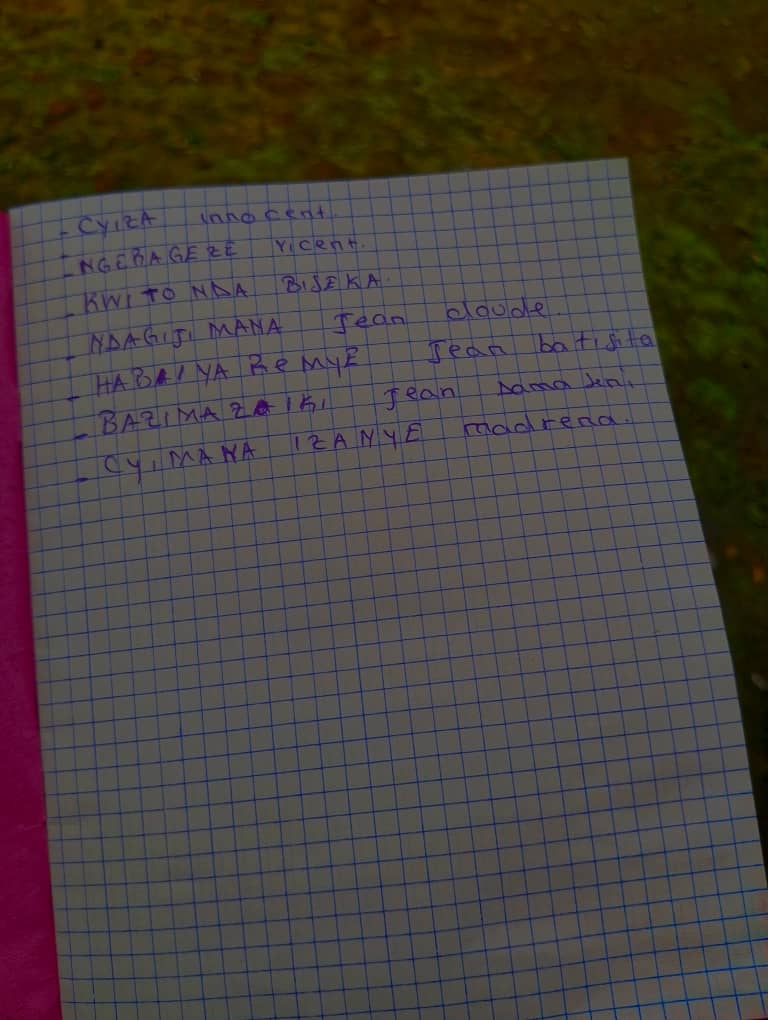 - CYIZA innocent.
- NGERAGEZE Vicent.
- KWITONDA BISEKA.
- NDAGIJIMANA Jean cloude.
- HABAIYAREMYE Jean batisita
- BAZIMAZAIKI Jean damaseni
- CYIMANA IZANYE madrena.